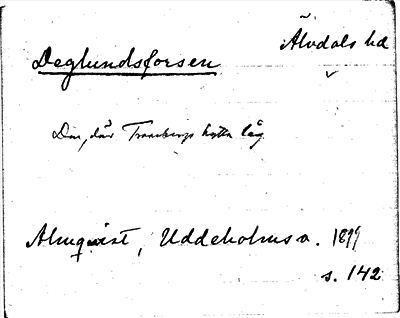 Älvdals hd
Deglundsforsen
Där, där Tranbergs hytta låg.
Almqvist, Uddeholmsv. 1899
s. 142